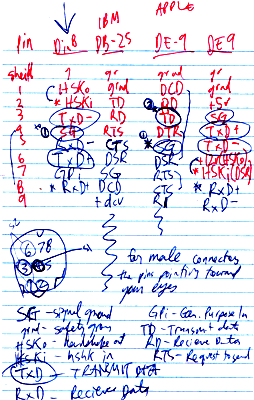 IBM APPLE
Pin Din 8 DB-25 DE-9 DE9
shell ? gr grnd gr
1 HSKo grnd DCD grnd
2 * HSKi TD RD +5v
3 TxD- RD TD SG
4 SG RTS DTR TxD+
5 RxD- CTS SG TxD-
6 TxD+ DSR DSR +12(HSKo)
7 GPi SG RTS * HSKi(DSR)
8 * RxD+ DCD CTS * RxD+
9 +dcv RI RxD-
6 7 8
3 4 5
1 2
for male connectors
the pins pointing toward
your eyes
SG - signal ground GPi - Gen. Purpose In
grnd - safety grnd TD - Transmit data
HSKo - handshake out RD - Recieve Data
HSKi - hshk in RTS - Request to send
TxD - TRANSMIT DATA
RxD - Recieve Data